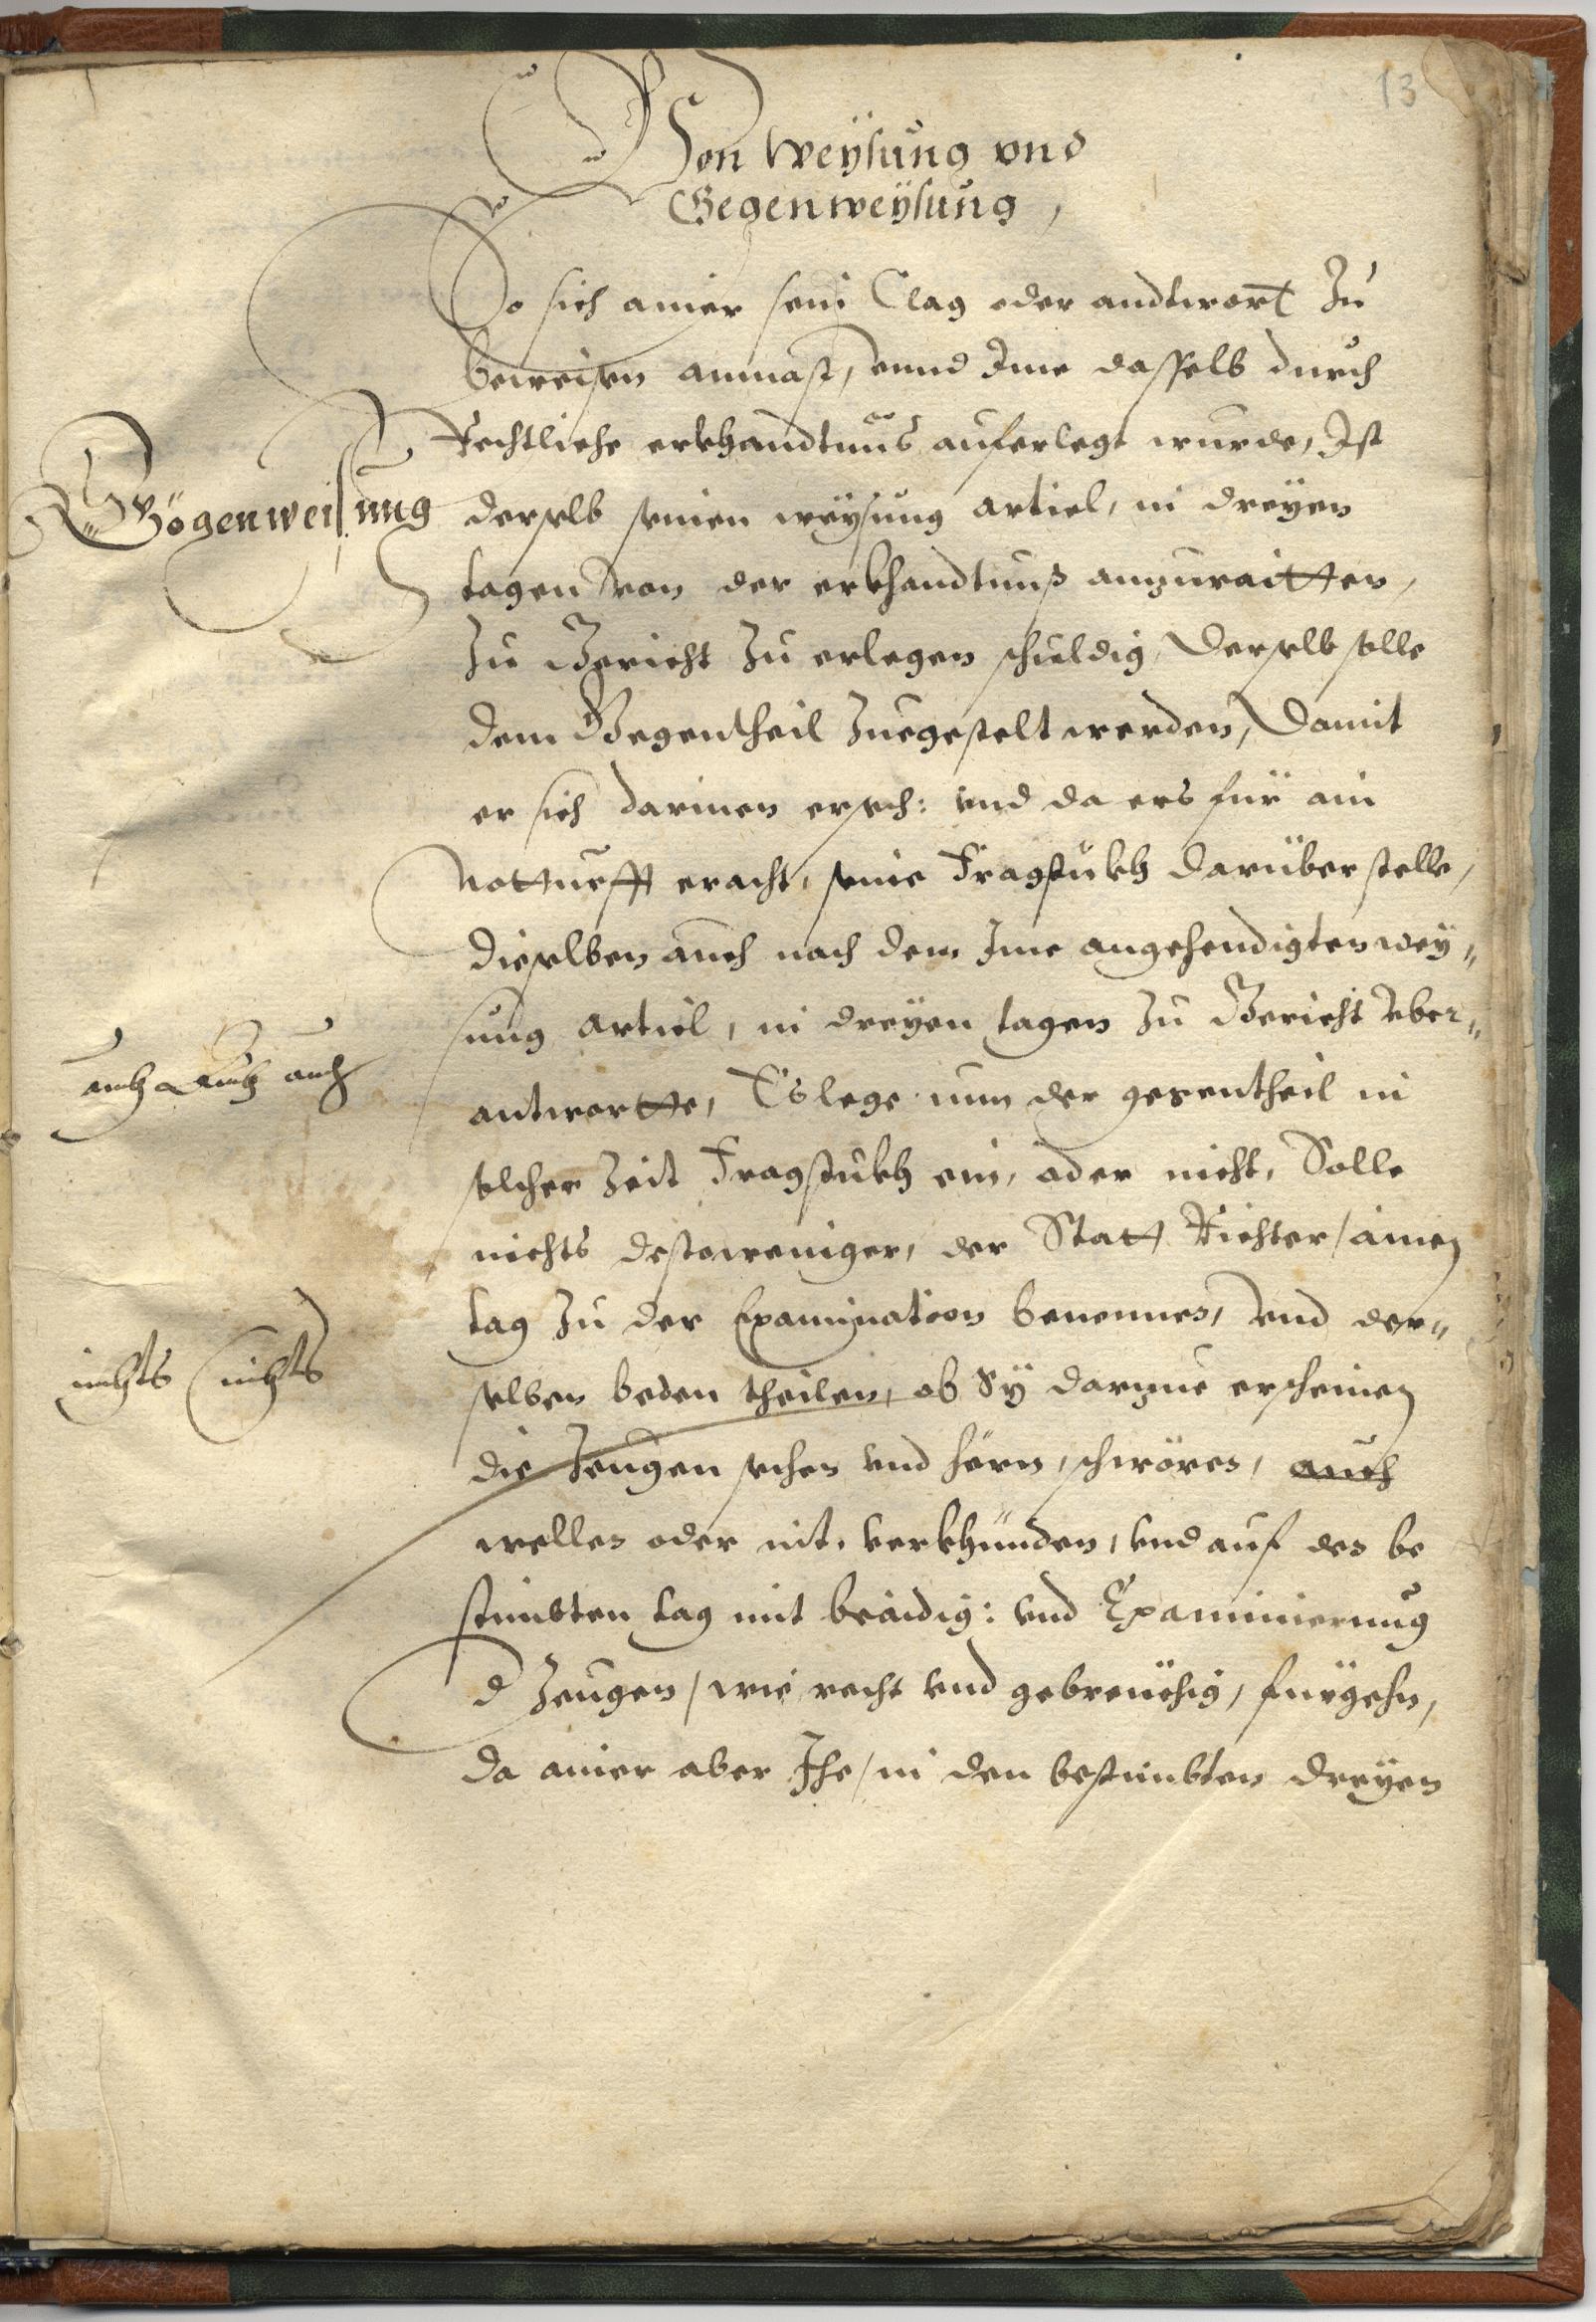 13
Von Weÿsung vnd
Gegenweÿsung,
So sich ainer sein Clag oder andtwort Zu
beweisen anmast, vnnd Ime dasselb durch
Rechtliche erkhandtnus auferlegt wurde, Ist
Gögenweisung
derselb seinen weÿsung articl, in dreÿen
tagen von der erkhandtnuß anzuraitten,
Zu Gericht Zu erlegen schuldig, Derselb solle
dem Gegentheil Zuegestelt werden, Damit
er sich darinen ersech: vnd da ers für ain
Notturfft eracht, seine Fragstukh darüber stelle,
dieselben auch nach dem Ime angehendigten weÿ„
sung articl, in dreÿen tagen Zu Gericht Vber„
auch auch auch
antwortte, Es lege nun der gegentheil in
solcher Zeit Fragstukh ein, oder nicht, Solle
nichts destoweniger, der Statt Richter / ainen
tag Zu der Examination benennen, vnd der„
nichts nichts
selben beden theilen, ob Sÿ darzue erscheinen
die Zeugen sehen vnd hörn, schwören, auch
wellen oder nit, verkhünden, vnd auf den be
stimbten tag mit beaidig: vnd Examinierung
d Zeugen / wie recht vnd gebreüchig, fürgehn,
da ainer aber Ihe / in den bestimbten dreÿen